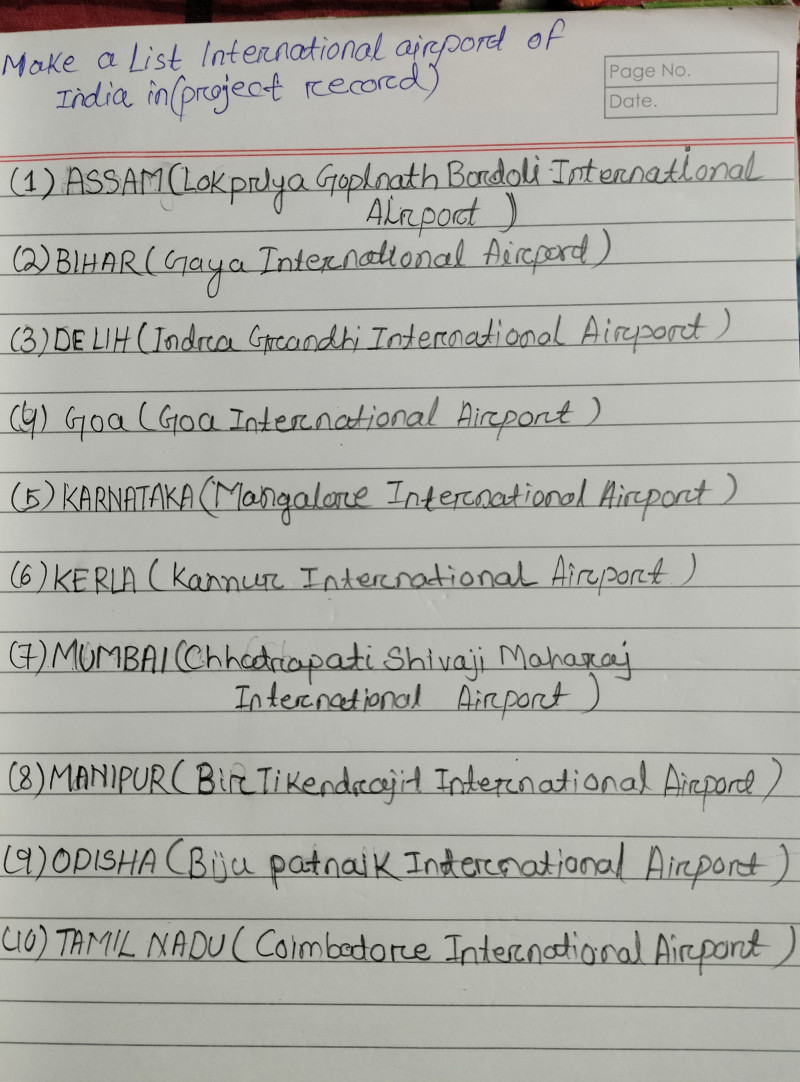 Make a List International airpord of
India in(project record)
Page No.
Date.
(1) ASSAM(Lokpriya Gopinath Bordoli International
Airport)
(2) BIHAR (Gaya International Airpord)
(3) DELIH (Indra Grandhi International Airport)
(4) Goa (Goa International Airport)
(5) KARNATAKA (Mangalore International Airport)
(6) KERLA (Kannur International Airport)
(7) MUMBAI (Chhatrapati Shivaji Maharaj
International Airport)
(8) MANIPUR (Bir Tikendrajit International Airport)
(9) ODISHA (Biju patnaik International Airport)
(10) TAMIL NADU (Coimbatore International Airport)